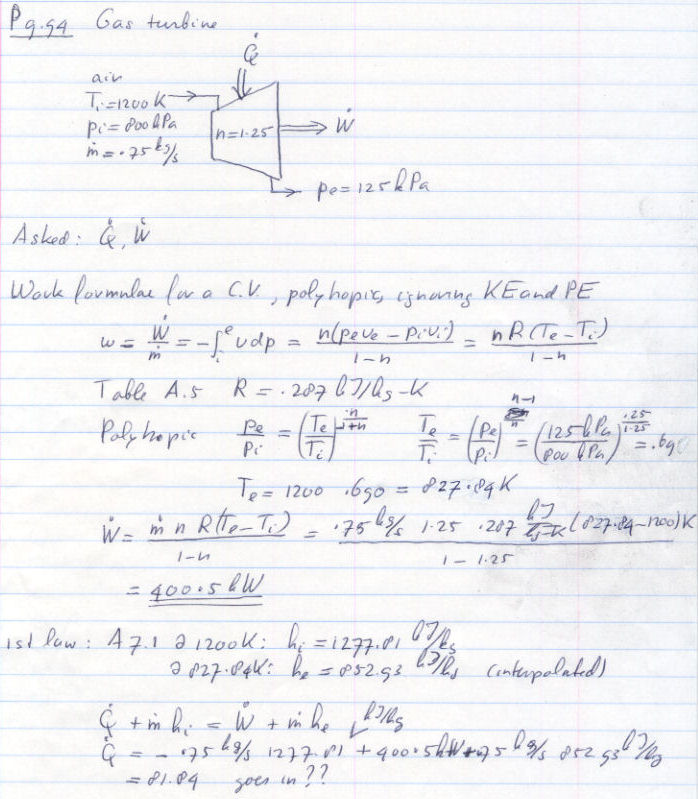 P 9.94 Gas turbine
Q̇
air
Ti=1200 K
pi= 800 kPa
ṁ = .75 kg/s
n=1.25
Ẇ
pe= 125 kPa
Asked: Q̇, Ẇ
Work formulae for a C.V., polytropic, ignoring KE and PE
w = Ẇ/ṁ = -∫_i^e v dp = n(peve - pivi)/(1-n) = nR(Te-Ti)/(1-n)
Table A.5 R = .287 kJ/kg-K
Polytropic pe/pi = (Te/Ti)^(-n/(1-n)) Te/Ti = (pe/pi)^((n-1)/n) = (125 kPa/800 kPa)^(.25/1.25) = .690
Te = 1200 .690 = 827.84 K
Ẇ = ṁ n R(Te-Ti)/(1-n) = .75 kg/s 1.25 .287 kJ/kg-K (827.84-1200)K/(1-1.25)
= 400.5 kW
1st law: A7.1 @ 1200K: hi = 1277.81 kJ/kg
@ 827.84K: he = 852.93 kJ/kg (interpolated)
Q̇ + ṁ hi = Ẇ + ṁ he kJ/kg
Q̇ = - .75 kg/s 1277.81 + 400.5 kW + .75 kg/s 852.93 kJ/kg
= 81.84 goes in ??